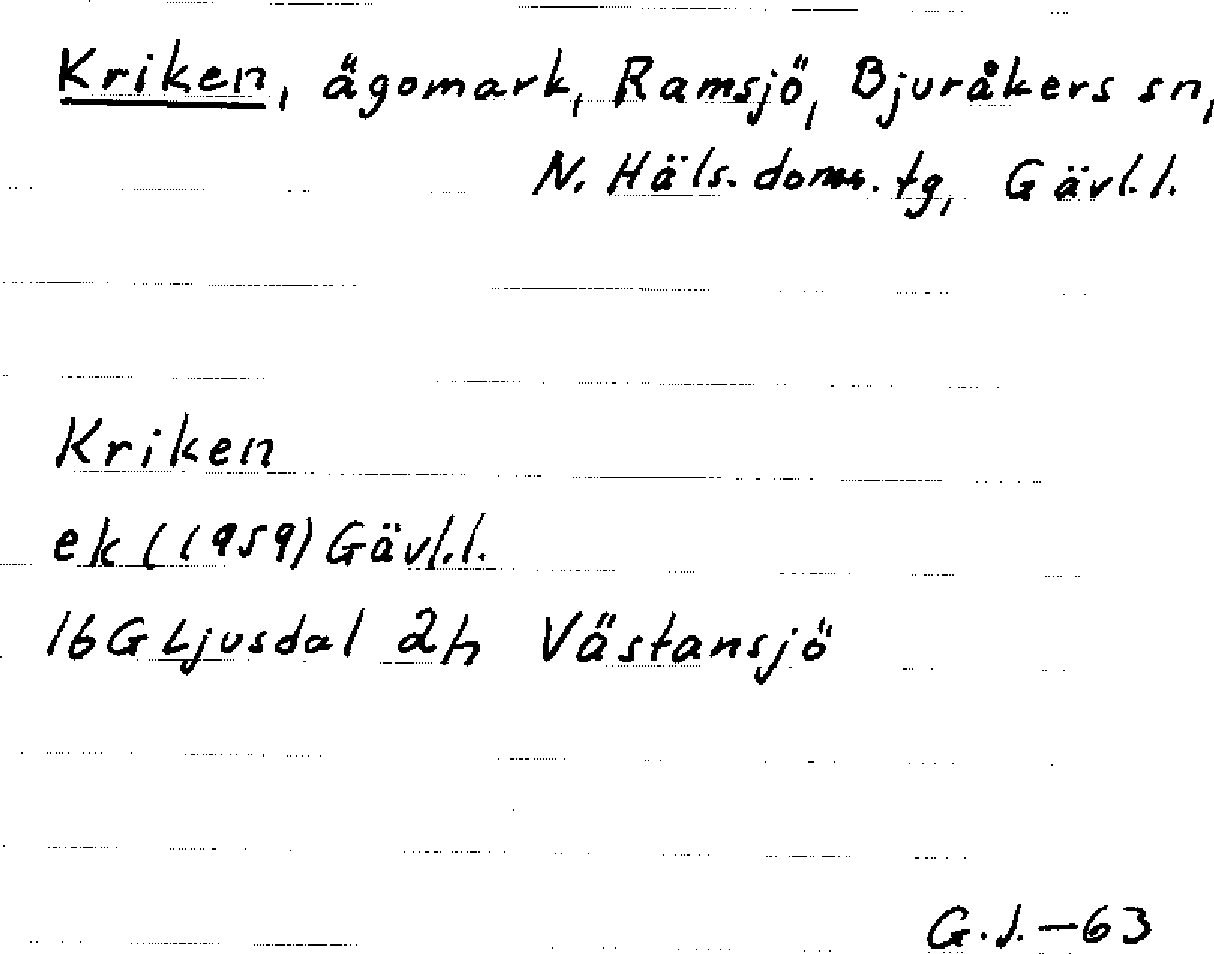 Kriken, ägomark, Ramsjö, Bjuråkers sn,
N. Häls. doms. tg, Gävl.l.
Kriken
ek (1959) Gävl.l.
16G Ljusdal 2h Västansjö
G.J.-63